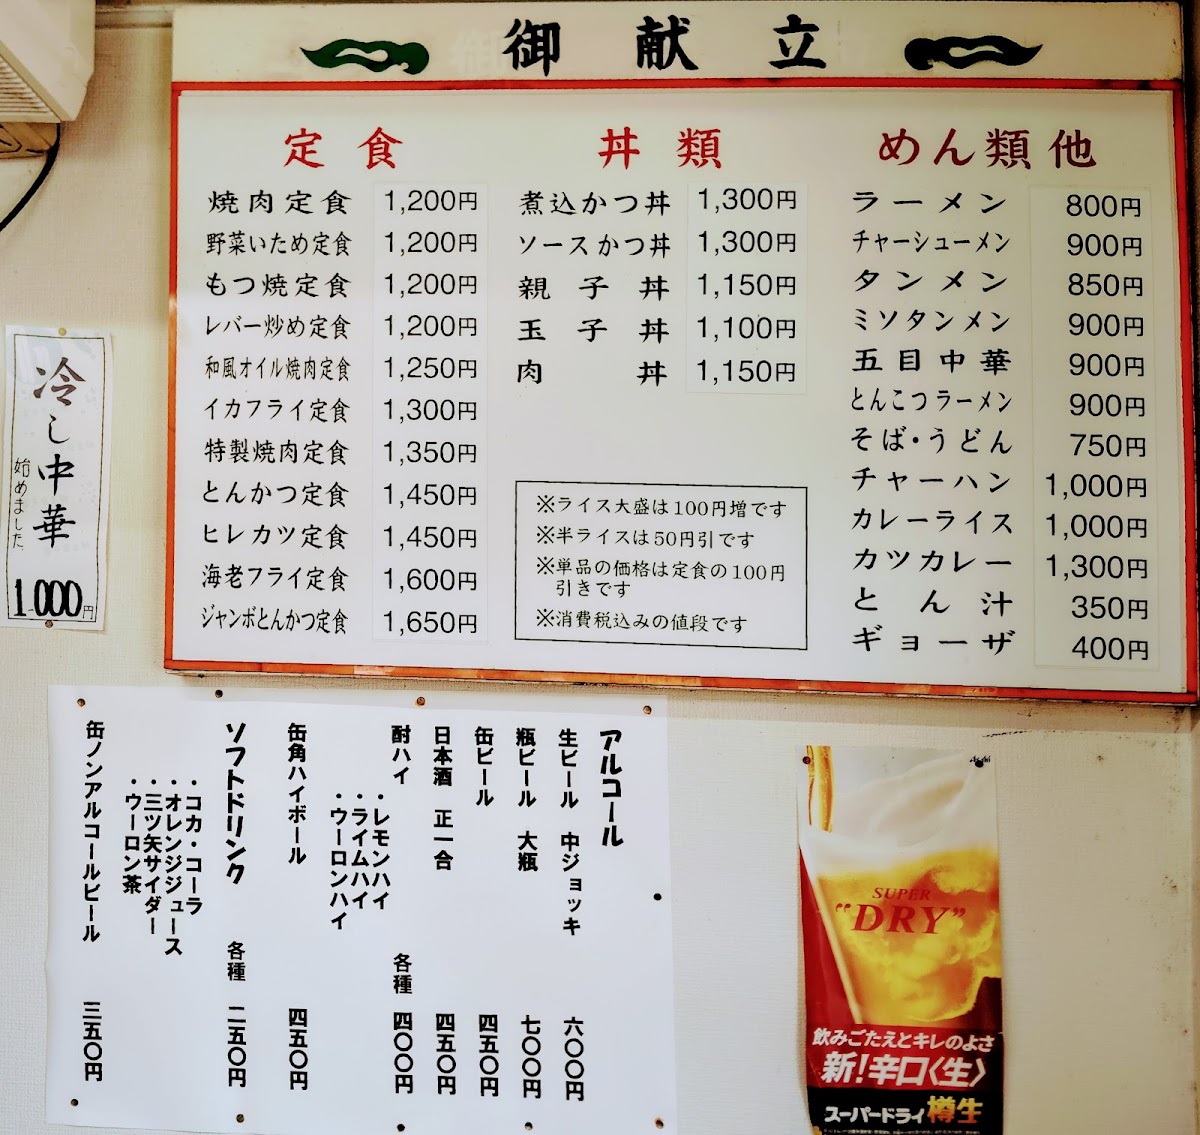 御献立
定食
焼肉定食 1,200円
野菜いため定食 1,200円
もつ焼定食 1,200円
レバー炒め定食 1,200円
和風オイル焼肉定食 1,250円
イカフライ定食 1,300円
特製焼肉定食 1,350円
とんかつ定食 1,450円
ヒレカツ定食 1,450円
海老フライ定食 1,600円
ジャンボとんかつ定食 1,650円
丼類
煮込かつ丼 1,300円
ソースかつ丼 1,300円
親子丼 1,150円
玉子丼 1,100円
肉丼 1,150円
※ライス大盛は100円増です
※半ライスは50円引です
※単品の価格は定食の100円
引きです
※消費税込みの値段です
めん類他
ラーメン 800円
チャーシューメン 900円
タンメン 850円
ミソタンメン 900円
五目中華 900円
とんこつラーメン 900円
そば・うどん 750円
チャーハン 1,000円
カレーライス 1,000円
カツカレー 1,300円
とん汁 350円
ギョーザ 400円
冷し中華
始めました
1.000円
アルコール
生ビール 中ジョッキ 六〇〇円
瓶ビール 大瓶 七〇〇円
缶ビール 四五〇円
日本酒 正一合 四五〇円
酎ハイ 各種 四〇〇円
・レモンハイ
・ライムハイ
・ウーロンハイ
缶角ハイボール 四五〇円
ソフトドリンク 各種 二五〇円
・コカ・コーラ
・オレンジジュース
・三ツ矢サイダー
・ウーロン茶
缶ノンアルコールビール 三五〇円
Asahi
SUPER
"DRY"
飲みごたえとキレのよさ
新!辛口〈生〉
スーパードライ 樽生